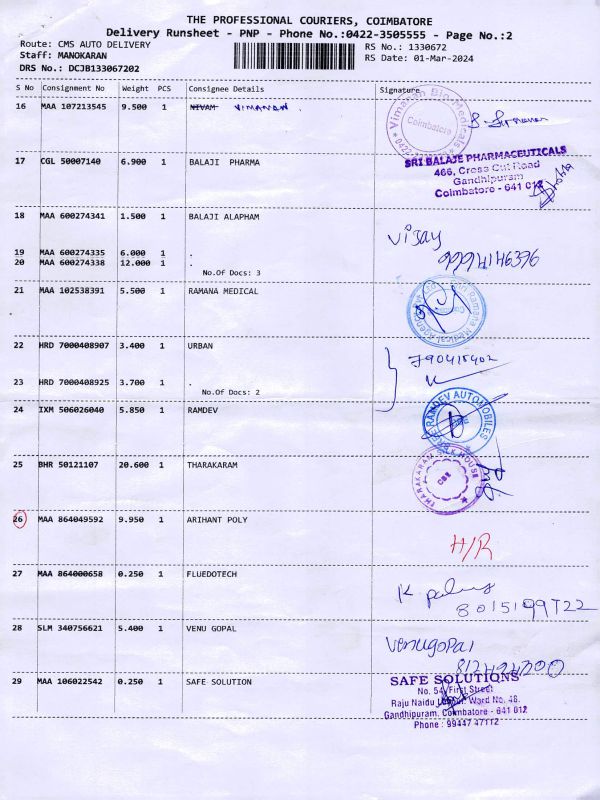 THE PROFESSIONAL COURIERS, COIMBATORE
Delivery Runsheet - PNP - Phone No.:0422-3505555 - Page No.:2
Route: CMS AUTO DELIVERY
RS No.: 1330672
Staff: MANOKARAN
RS Date: 01-Mar-2024
DRS No.: DCJB133067202
S No Consignment No Weight PCS Consignee Details Signature
16 MAA 107213545 9.500 1 NIVAM VIMANAN
Vimanan Bio-Medicals
Coimbatore
17 CGL 50007140 6.900 1 BALAJI PHARMA
SRI BALAJE PHARMACEUTICALS
466, Cross Cut Road
Gandhipuram
Coimbatore - 641 012
18 MAA 600274341 1.500 1 BALAJI ALAPHAM
Vijay
19 MAA 600274335 6.000 1 .
9994146396
20 MAA 600274338 12.000 1 .
No.Of Docs: 3
21 MAA 102538391 5.500 1 RAMANA MEDICAL
22 HRD 7000408907 3.400 1 URBAN
790415402
23 HRD 7000408925 3.700 1 .
No.Of Docs: 2
24 IXM 506026040 5.850 1 RAMDEV
RAMDEV AUTOMOBILES
25 BHR 50121107 20.600 1 THARAKARAM
THARAKARAM SILK HOUSE
CBE
26 MAA 864049592 9.950 1 ARIHANT POLY
H/R
27 MAA 864000658 0.250 1 FLUEDOTECH
K
8015199722
28 SLM 340756621 5.400 1 VENU GOPAL
Venugopal
29 MAA 106022542 0.250 1 SAFE SOLUTION
SAFE SOLUTIONS
No. 54, First Street
Raju Naidu Layout, Ward No. 46,
Gandhipuram, Coimbatore - 641 012
Phone : 99447 47112